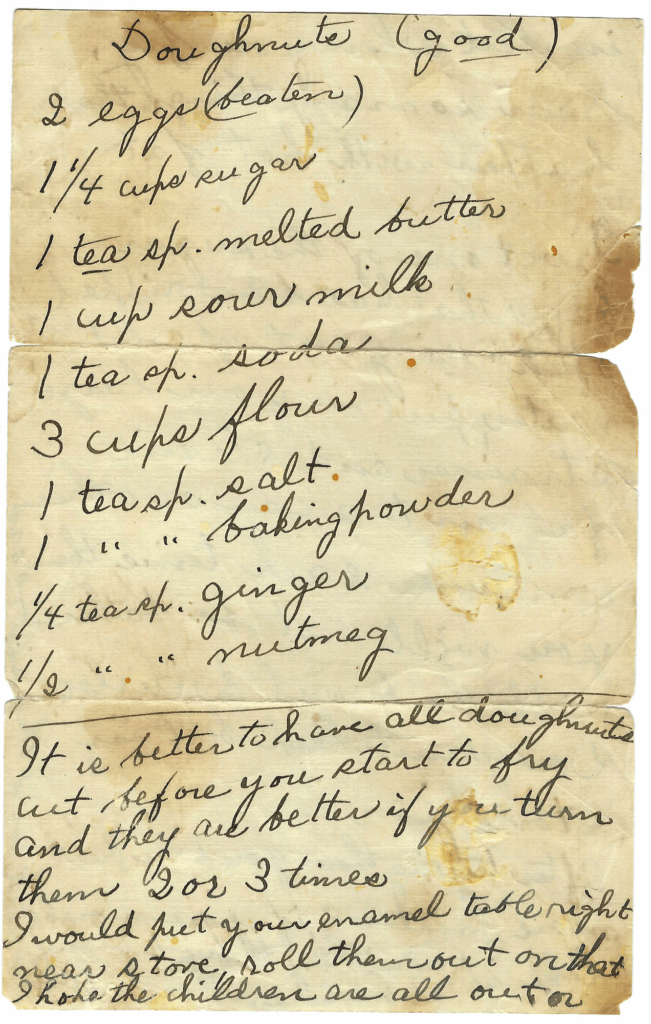 Doughnuts (good)
2 eggs (beaten)
1 1/4 cups sugar
1 tea sp. melted butter
1 cup sour milk
1 tea sp. soda
3 cups flour
1 tea sp. salt.
1 " " baking powder
1/4 tea sp. ginger
1/2 " " nutmeg
It is better to have all doughnuts
cut before you start to fry
and they are better if you turn
them 2 or 3 times
I would put your enamel table right
near stove, roll them out on that
I hope the children are all out or